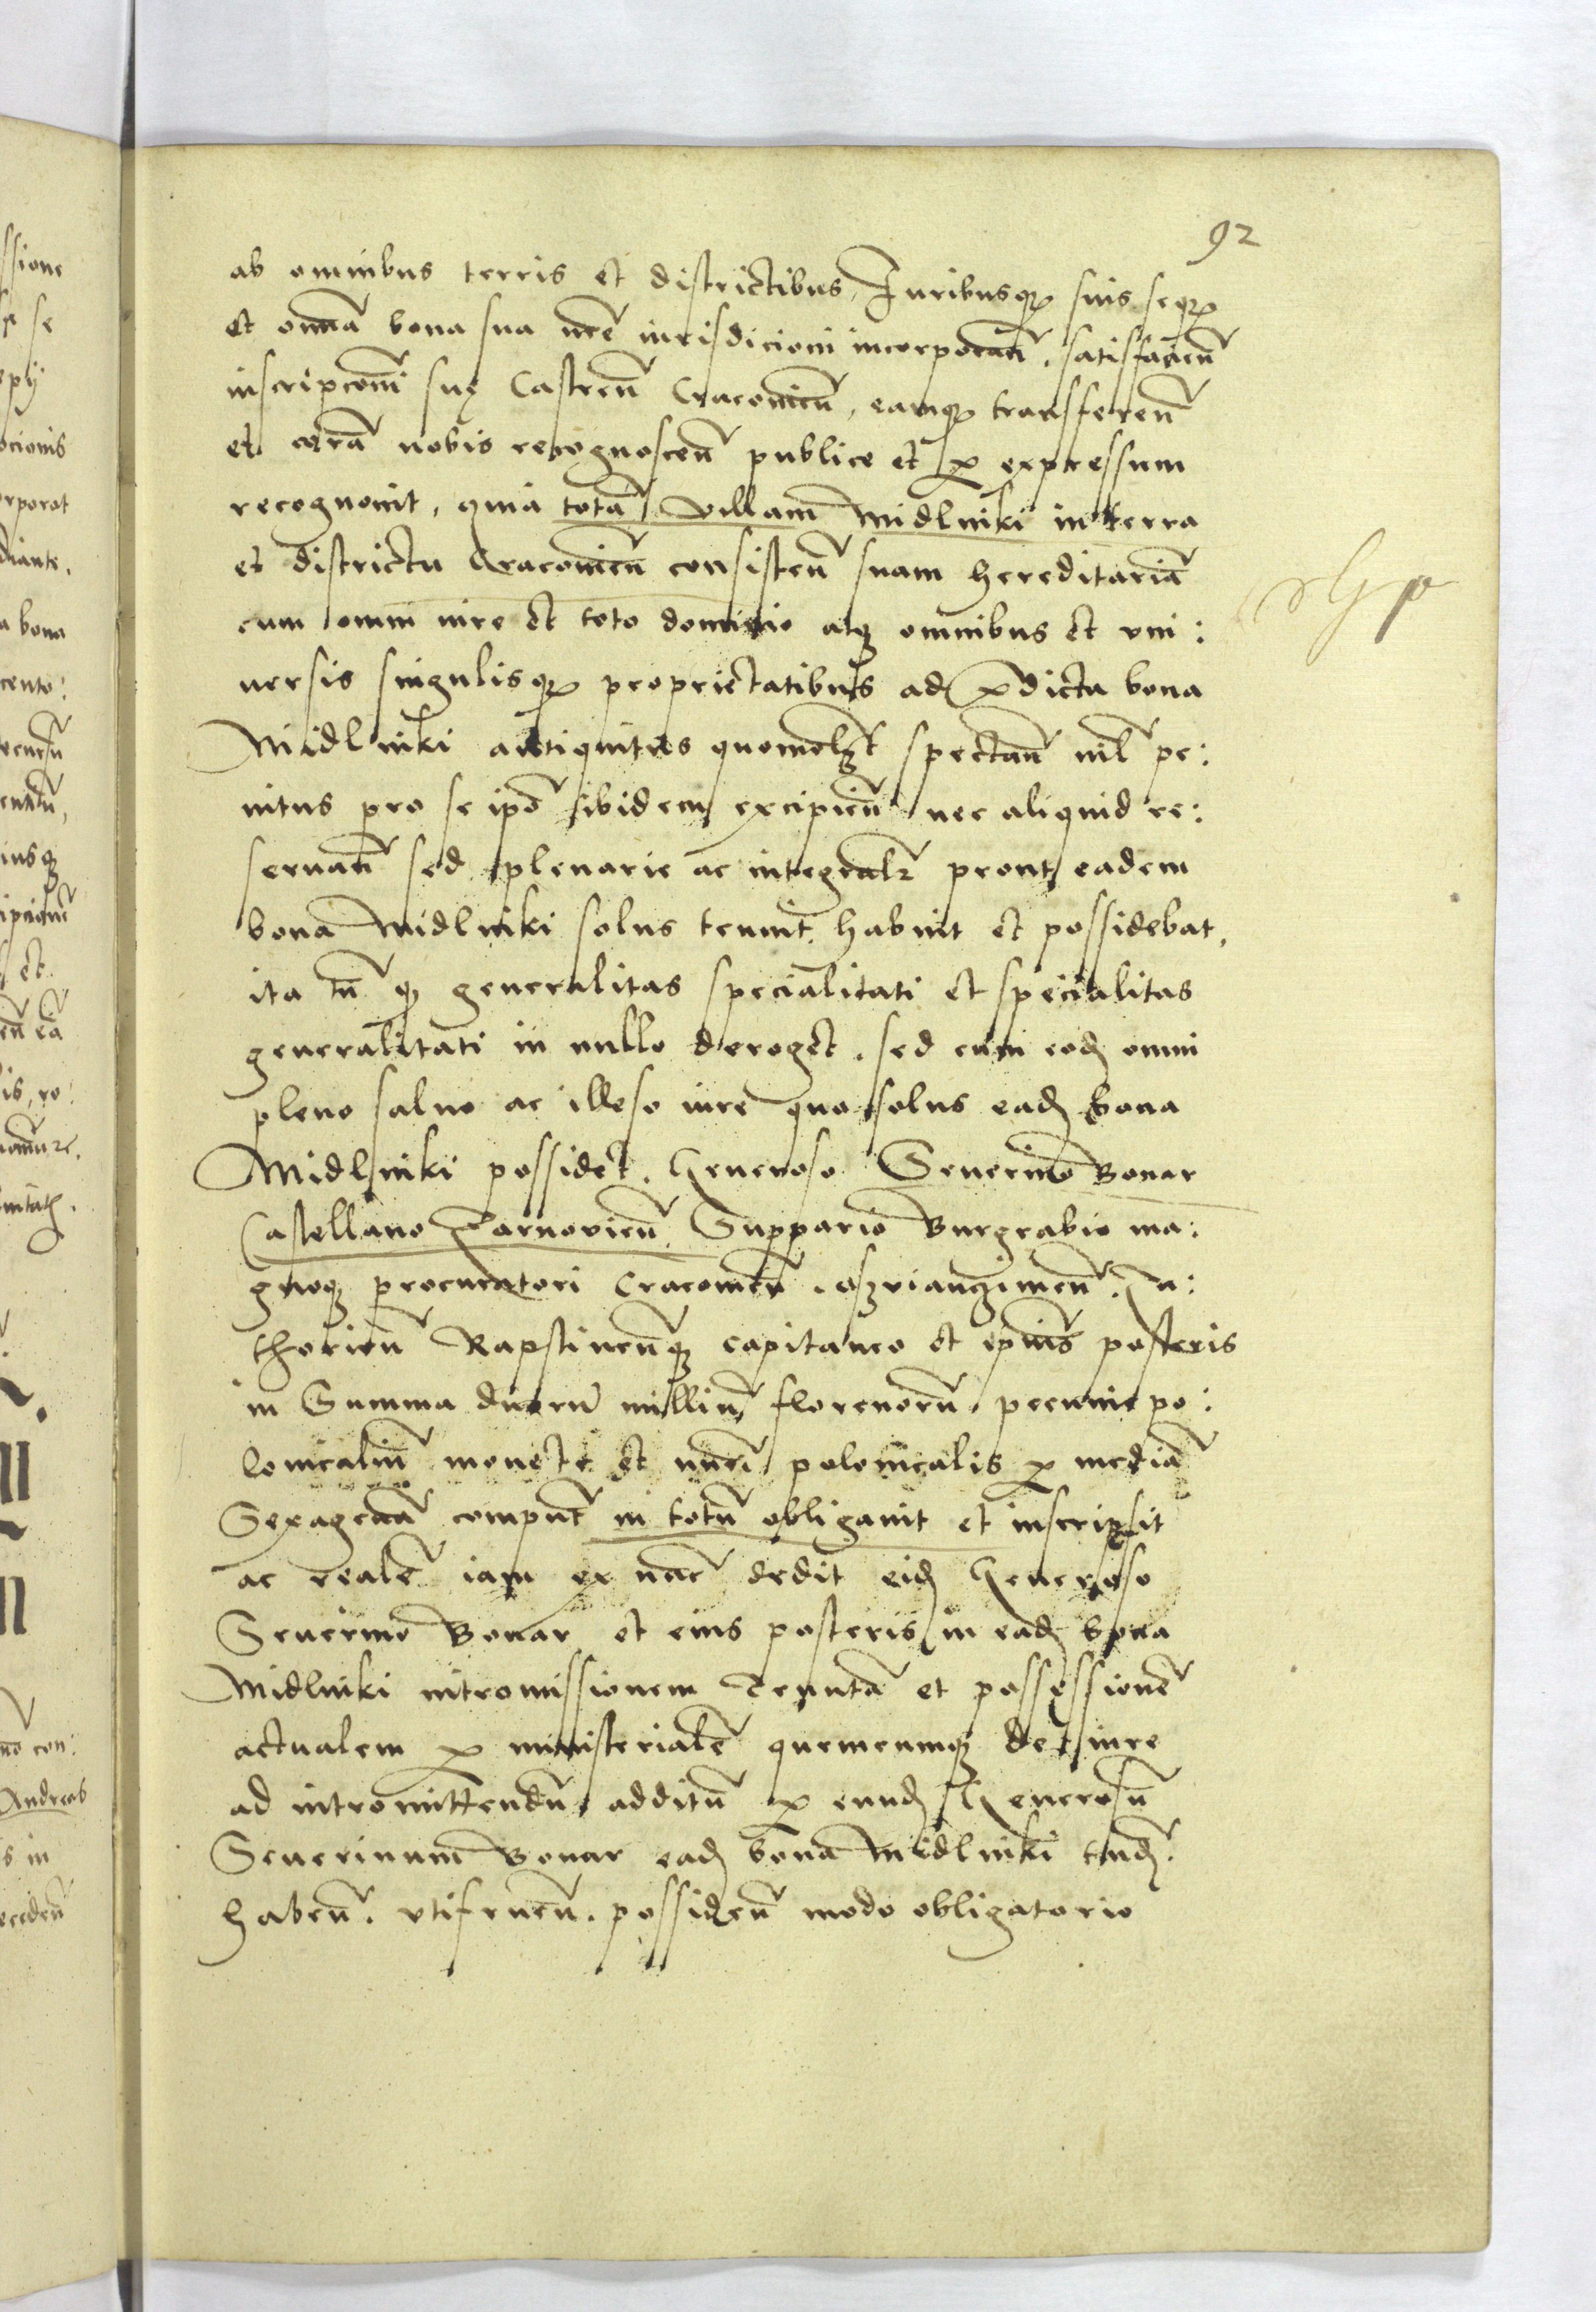 92
ab omnibus terris et districtibus, Iuribusq₃ suis seq₃
et omnā bona sua nr̄e iurisdicioni incorporan̄. satisfacien̄
inscripcōni suę Castren̄ Cracouien̄, eamq₃ transferen̄
et corā nobis recognoscen̄ publice et ꝑ expressum
recognouit, quia totā villam Midlniki in terra
et districtu Cracouien̄ consisten̄ suam hereditariā
cum omni iure et toto dominio atq₃ omnibus et vni:
uersis singulisq₃ proprietatibus ad p̄dicta bona
Midlniki antiquitus quomōlꝫt spectan̄ nil̄ pe:
nitus pro se ip̄o ibidem excipien̄ nec aliquid re:
seruan̄ sed plenarie ac integralr̄ prout eadem
bona Midlniki solus tenuit habuit et possidebat,
ita tn̄ q₃ generalitas specialitati et specialitas
generalitati in nullo deroget. sed cum eod̄ omni
pleno saluo ac illeso iure quo solus ead̄ bona
Midlniki possidet. Generoso Seuerino Bonar
Castellano Zarnouien̄. Suppario Burgrabio ma:
gnoq₃ procuratori Cracouien̄. oszwianczimen̄. Za:
thorien̄ Rapstinen̄q₃ capitaneo et ip̄ius posteris
in Summa duorū milliū florenorū pecunie po:
lonicaliū monete et nūeri polonicalis ꝑ mediā
Sexagenā comput̄ in totū obligauit et inscripsit
ac realē iam ex nūc dedit eid̄ Generoso
Seuerino Bonar et eius posteris in ead̄ bona
Midlniki intromissionem Tenutā et possessionē
actualem ꝑ ministerialē quemcunq₃ de iure
ad intromittendū additū ꝑ eund̄ Generosū
Seuerinum Bonar ead̄ bona Midlniki tn̄d̄.
haben̄. vtifruen̄. possiden̄ modo obligatorio